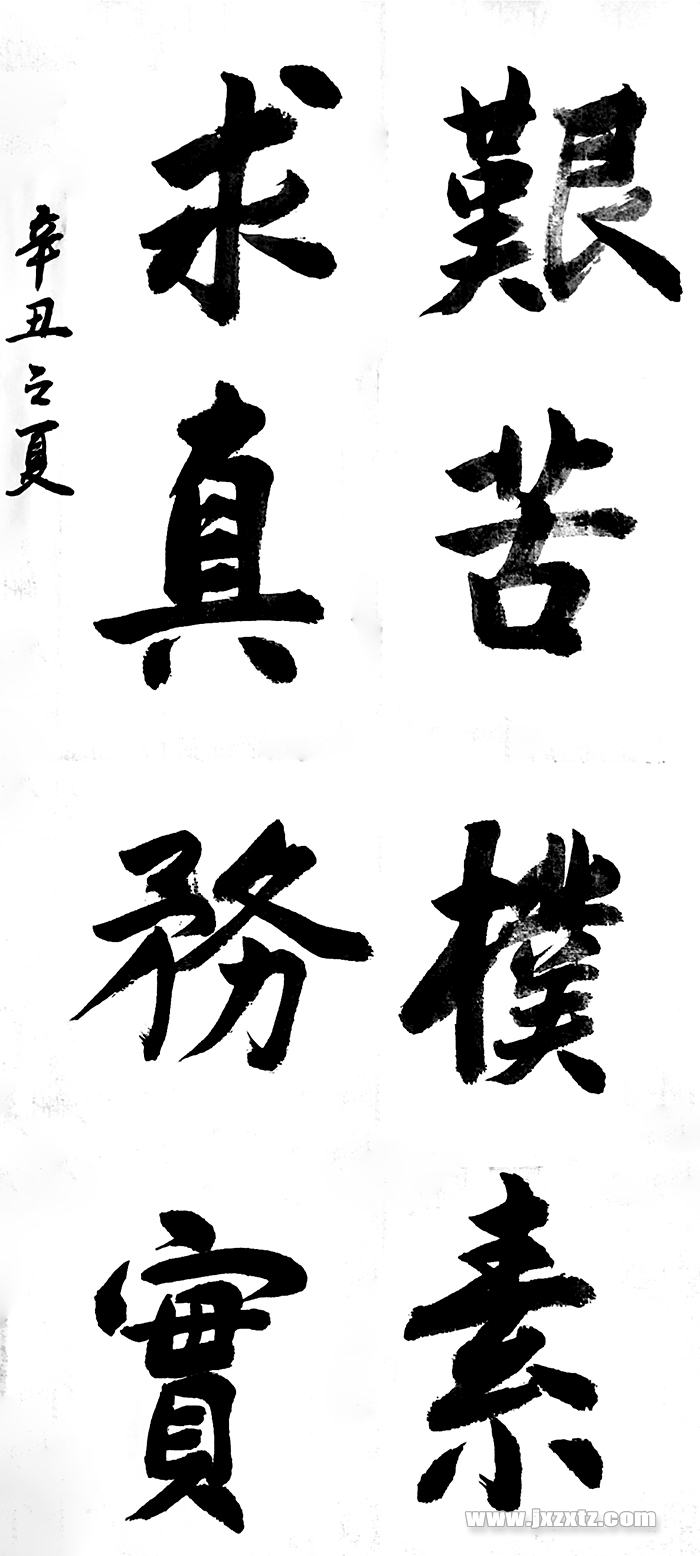 艱苦樸素
求真務實
辛丑之夏
www.jxzxtz.com